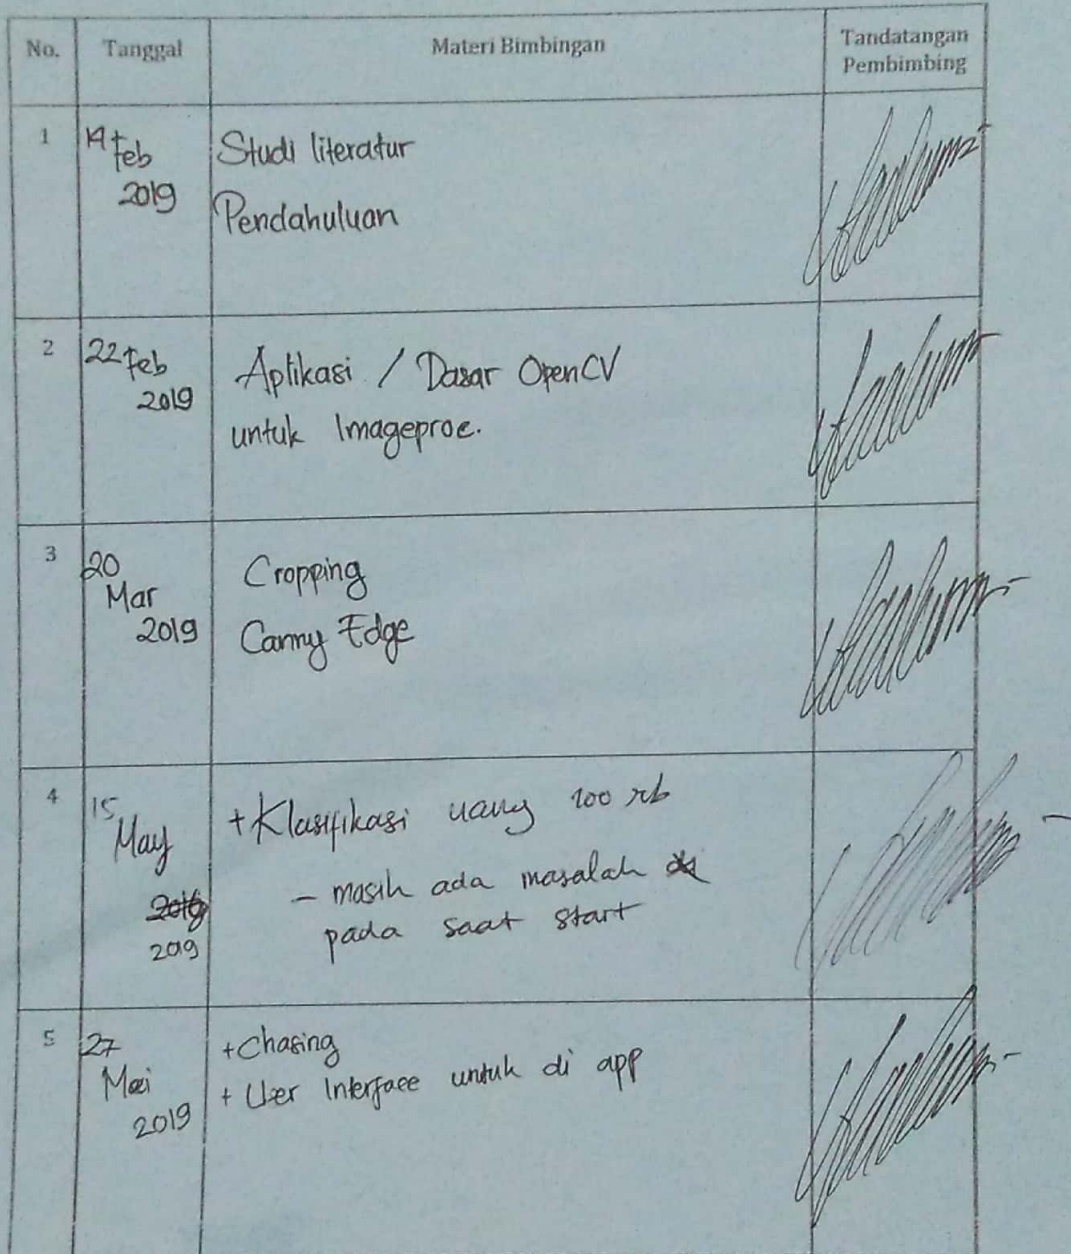 No. Tanggal Materi Bimbingan Tandatangan
Pembimbing
1 14 Feb
2019
Studi literatur
Pendahuluan
2 22 Feb
2019
Aplikasi / Dasar OpenCV
untuk Imageproc.
3 20
Mar
2019
Cropping
Canny Edge
4 15
May
2019
+ Klasifikasi uang 100 rb
- masih ada masalah
pada saat start
5 27
Mei
2019
+ Chasing
+ User Interface untuk di app